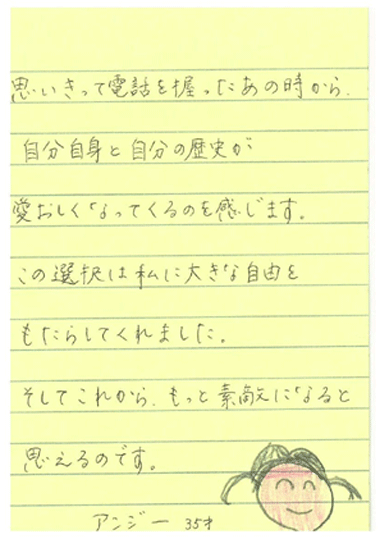 思いきって電話を握ったあの時から、
自分自身と自分の歴史が
愛おしくなってくるのを感じます。
この選択は私に大きな自由を
もたらしてくれました。
そしてこれから、もっと素敵になると
思えるのです。
アンジー 35才